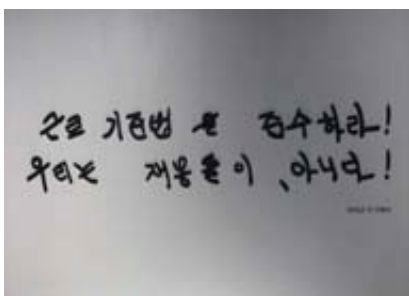 근로 기준법을 준수하라!
우리는 재봉틀이 아니다!